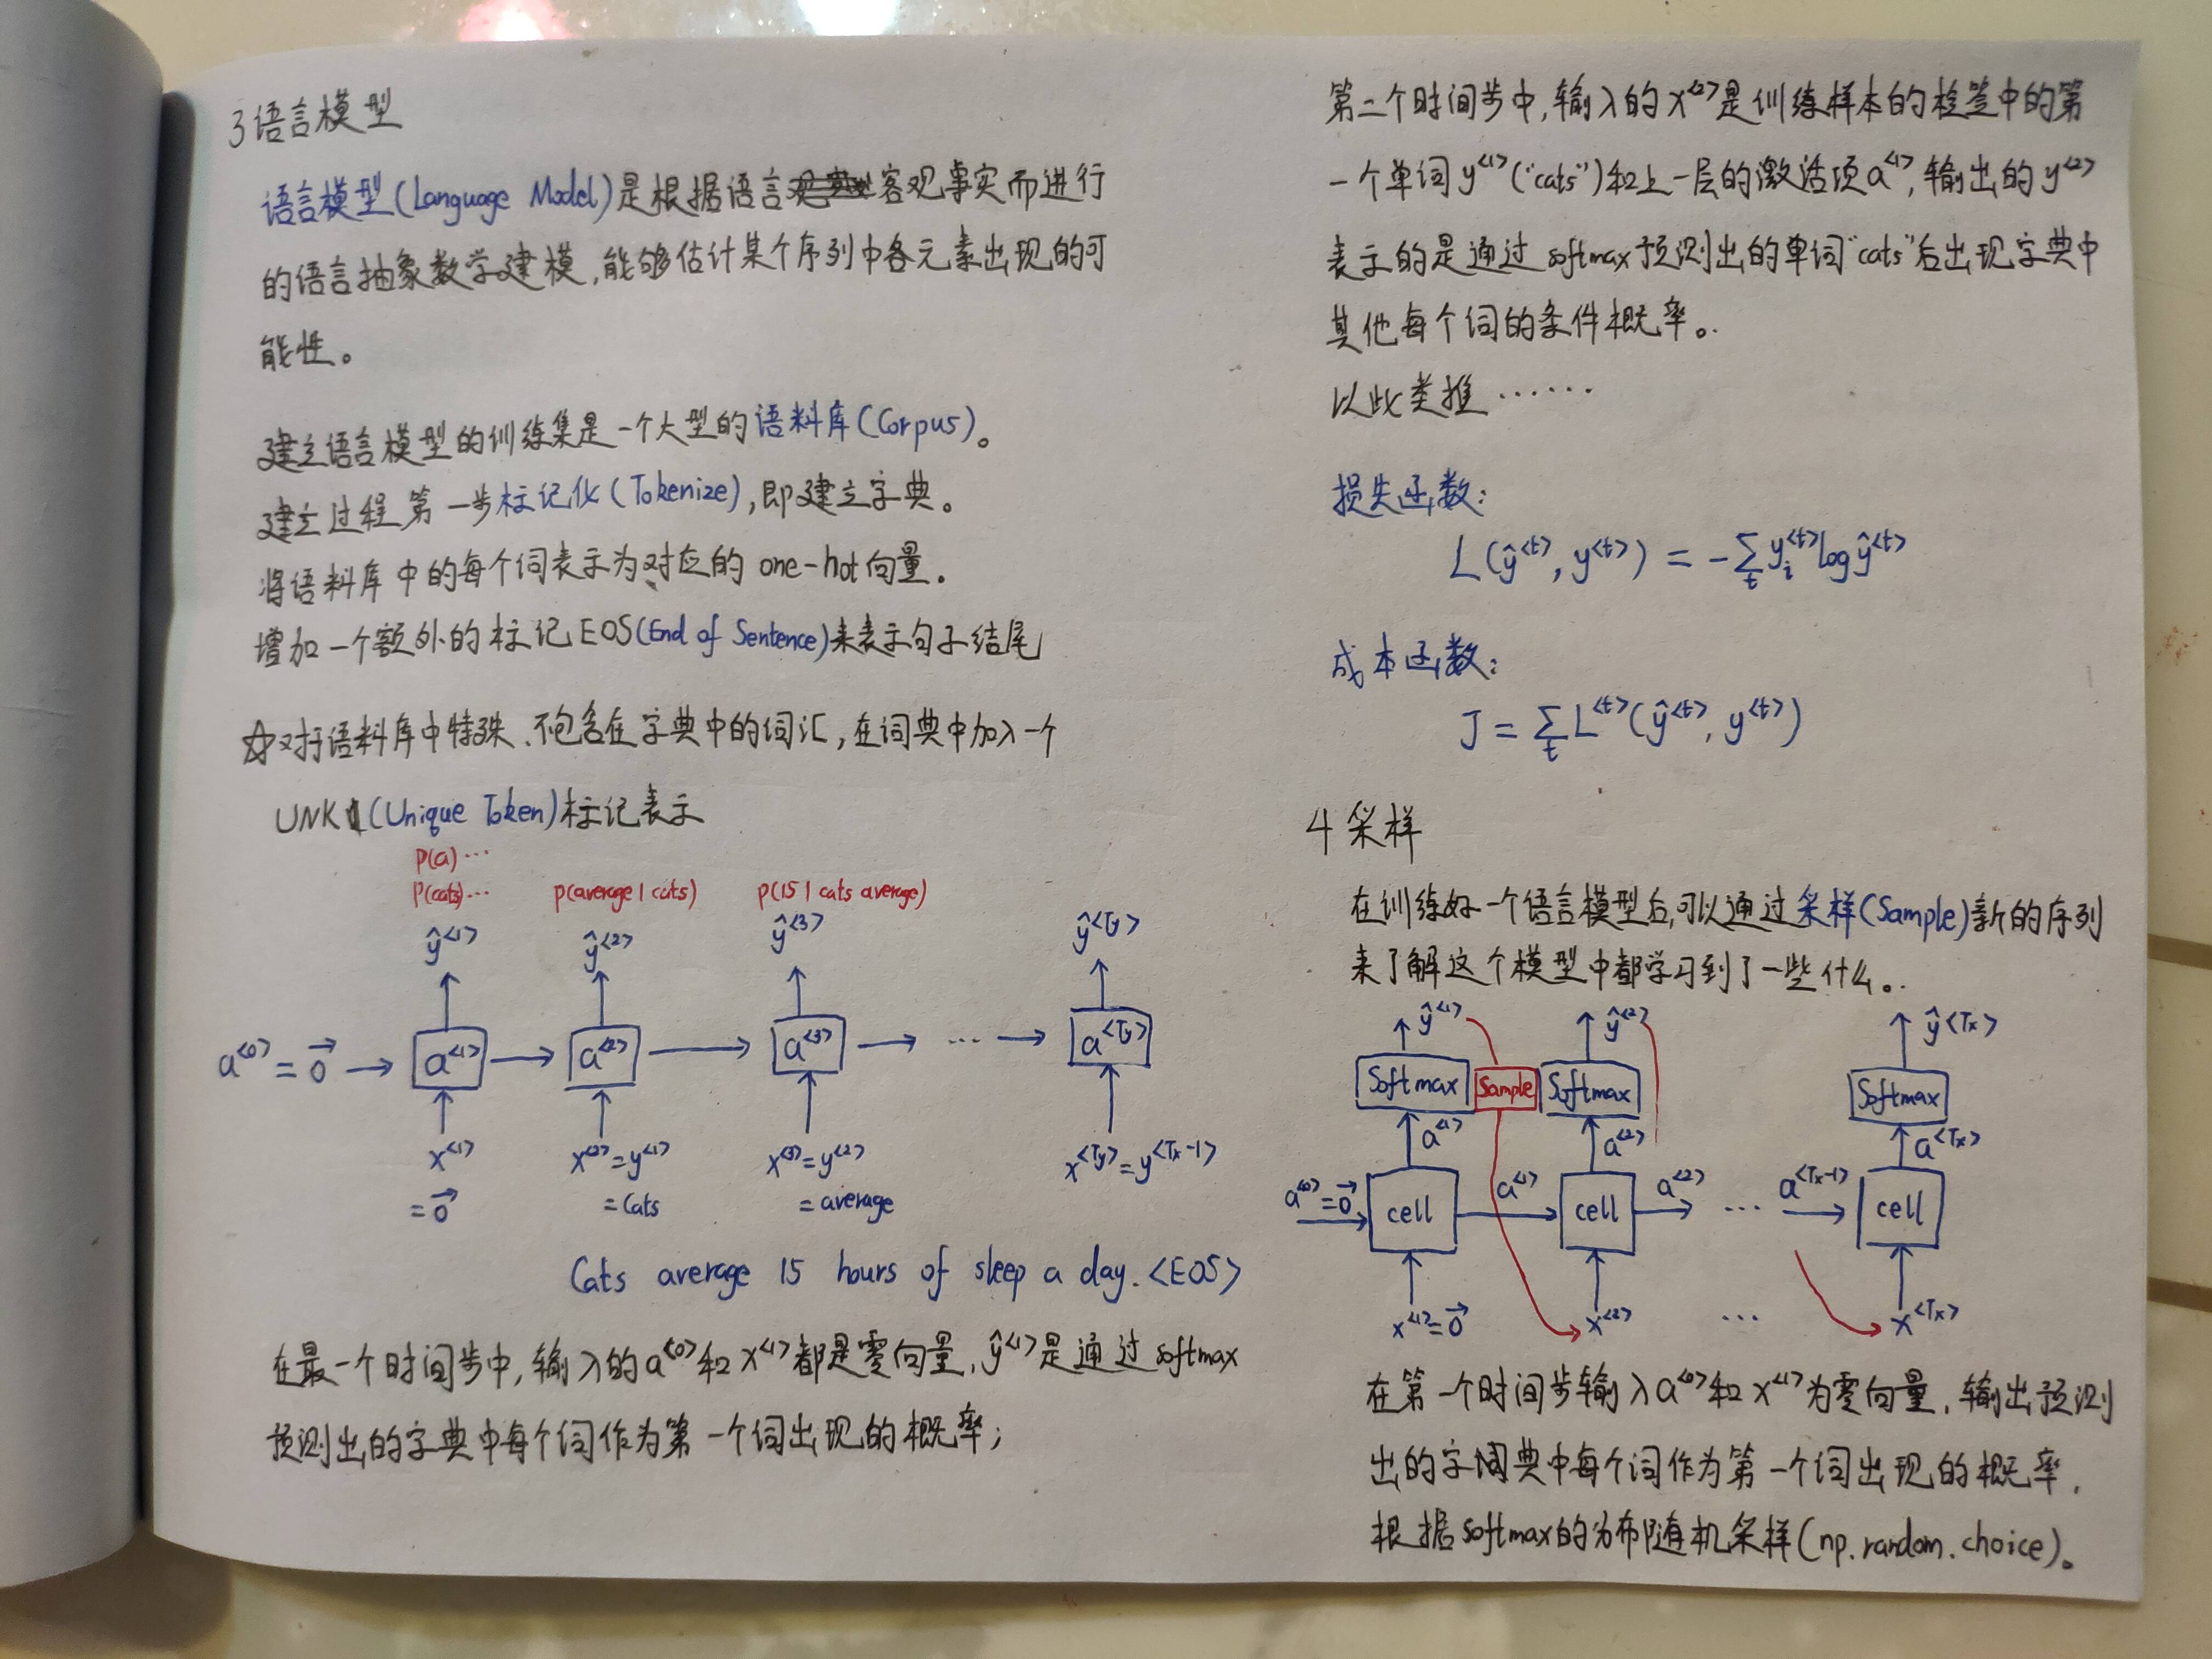 3 语言模型
语言模型(Language Model)是根据语言客观事实而进行
的语言抽象数学建模,能够估计某个序列中各元素出现的可
能性。
建立语言模型的训练集是一个大型的语料库(Corpus)。
建立过程第一步标记化(Tokenize),即建立字典。
将语料库中的每个词表示为对应的 one-hot向量。
增加一个额外的标记EOS(End of Sentence)来表示句子结尾
☆对于语料库中特殊、不包含在字典中的词汇,在词典中加入一个
UNK(Unique Token)标记表示
p(a)…
p(cats)… p(average | cats) p(15 | cats average)
ŷ<1> ŷ<2> ŷ<3> ŷ<Ty>
a<0> = 0⃗ → a<1> → a<2> → a<3> → … → a<Ty>
x<1> x<2>=y<1> x<3>=y<2> x<Ty>=y<Tx-1>
=0⃗ =Cats =average
Cats average 15 hours of sleep a day. <EOS>
在最一个时间步中,输入的a<0>和x<1>都是零向量,ŷ<1>是通过softmax
预测出的字典中每个词作为第一个词出现的概率;
第二个时间步中,输入的x<2>是训练样本的标签中的第
一个单词y<1>("cats")和上一层的激活项a<1>,输出的y<2>
表示的是通过softmax预测出的单词"cats"后出现字典中
其他每个词的条件概率。
以此类推……
损失函数:
L(ŷ<t>, y<t>) = -∑t yi<t> log ŷ<t>
成本函数:
J = ∑t L<t>(ŷ<t>, y<t>)
4 采样
在训练好一个语言模型后,可以通过采样(Sample)新的序列
来了解这个模型中都学习到了一些什么。
ŷ<1> ŷ<2> ŷ<Tx>
Softmax Sample Softmax Softmax
a<1> a<2> a<Tx>
a<0>=0⃗ cell a<1> cell a<2> … a<Tx-1> cell
x<1>=0⃗ x<2> … x<Tx>
在第一个时间步输入a<0>和x<1>为零向量,输出预测
出的字词典中每个词作为第一个词出现的概率,
根据softmax的分布随机采样(np.random.choice)。